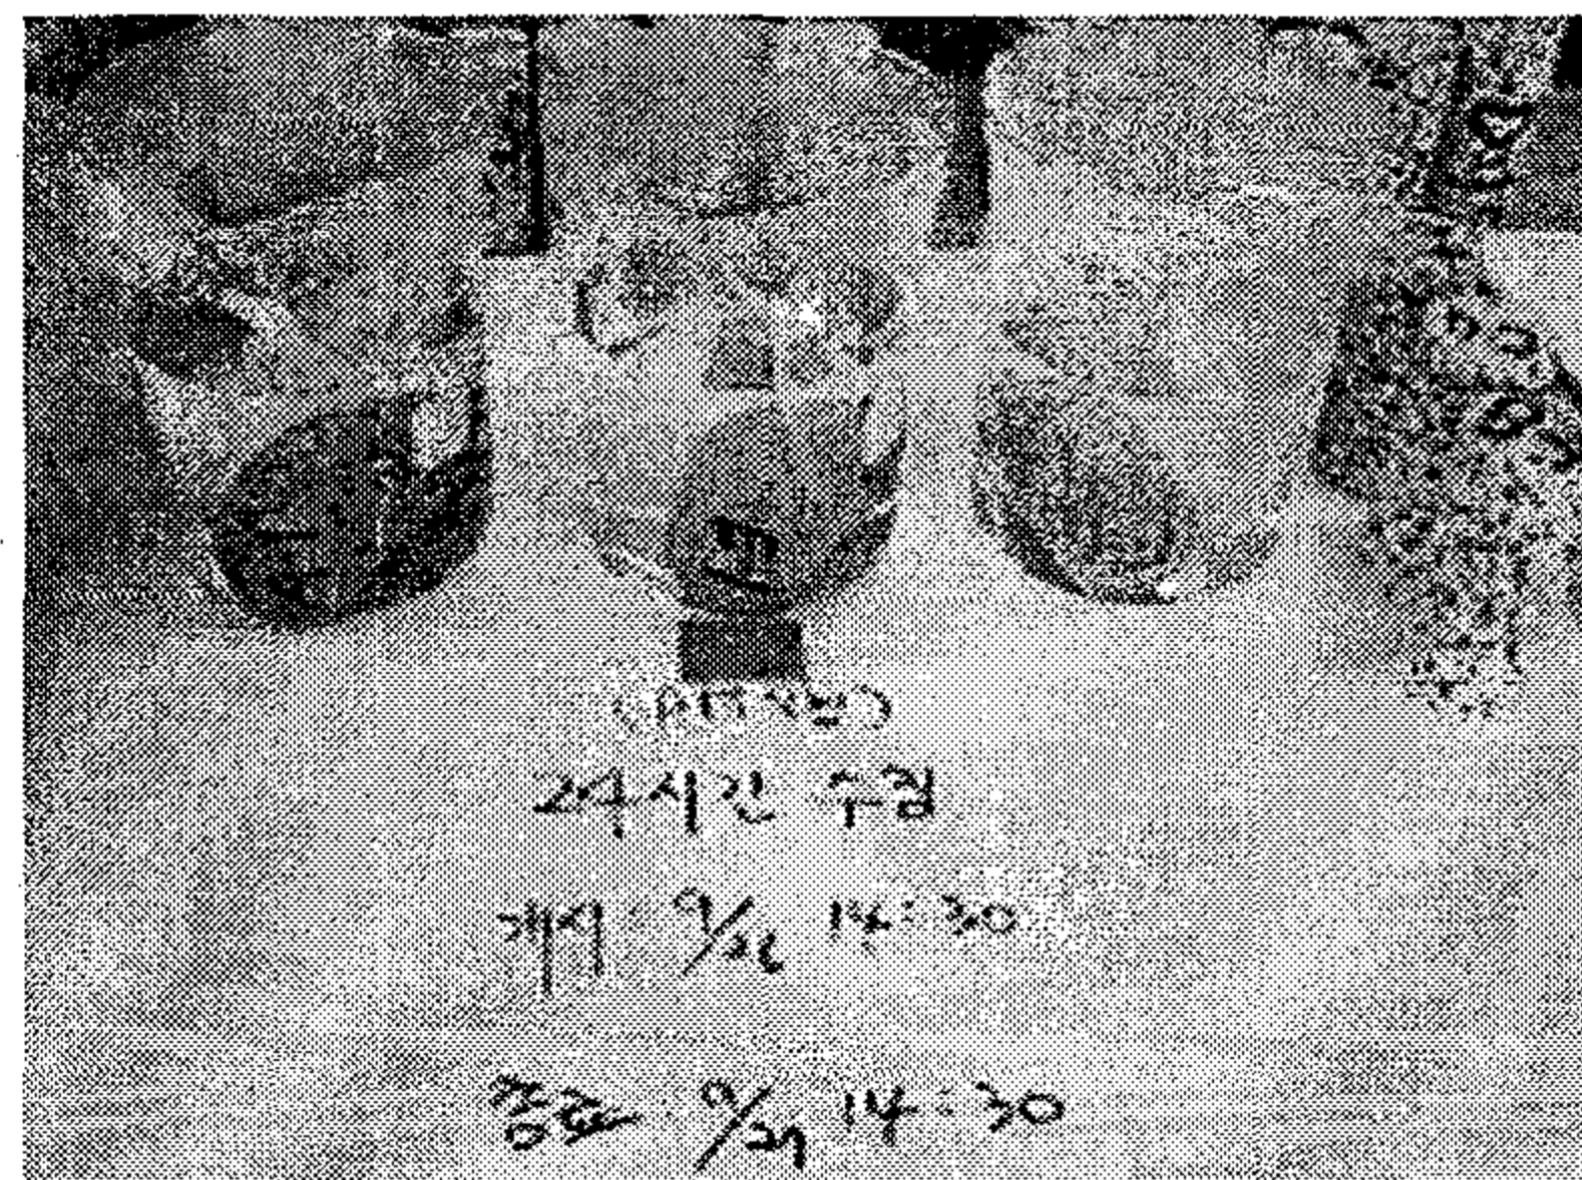 24시간 수침
개시 : 9/26 14:30
종료 : 9/27 14:30